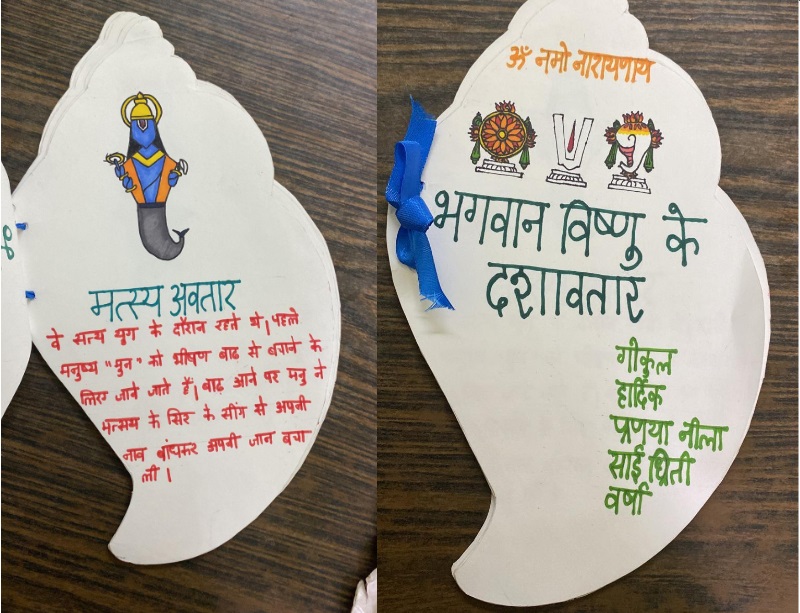 मत्स्य अवतार
वे सत्य युग के दौरान रहते थे। पहले
मनुष्य "मुन" को भीषण बाढ़ से बचाने के
लिए जाने जाते हैं। बाढ़ आने पर मनु ने
मत्सय के सिर के सींग से अपनी
नाव बांधकर अपनी जान बचा
ली।
ॐ नमो नारायणाय
भगवान विष्णु के
दशावतार
गोकुल
हार्दिक
प्रणया नीला
साई ध्रिती
वर्षा